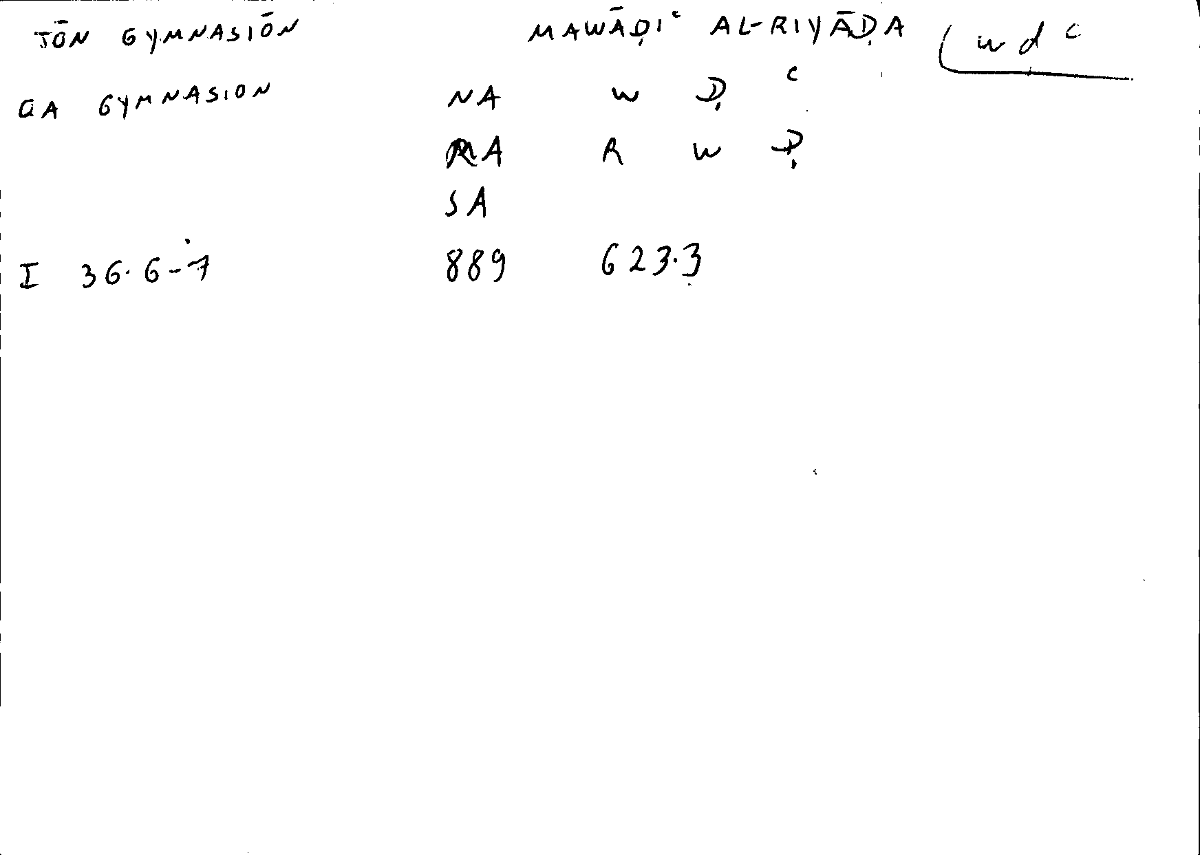 TŌN GYMNASIŌN MAWĀḌIʿ AL-RIYĀḌA wdʿ
QA GYMNASION NA W Ḍ ʿ
MA R W Ḍ
SA
I 36.6-7 889 623.3